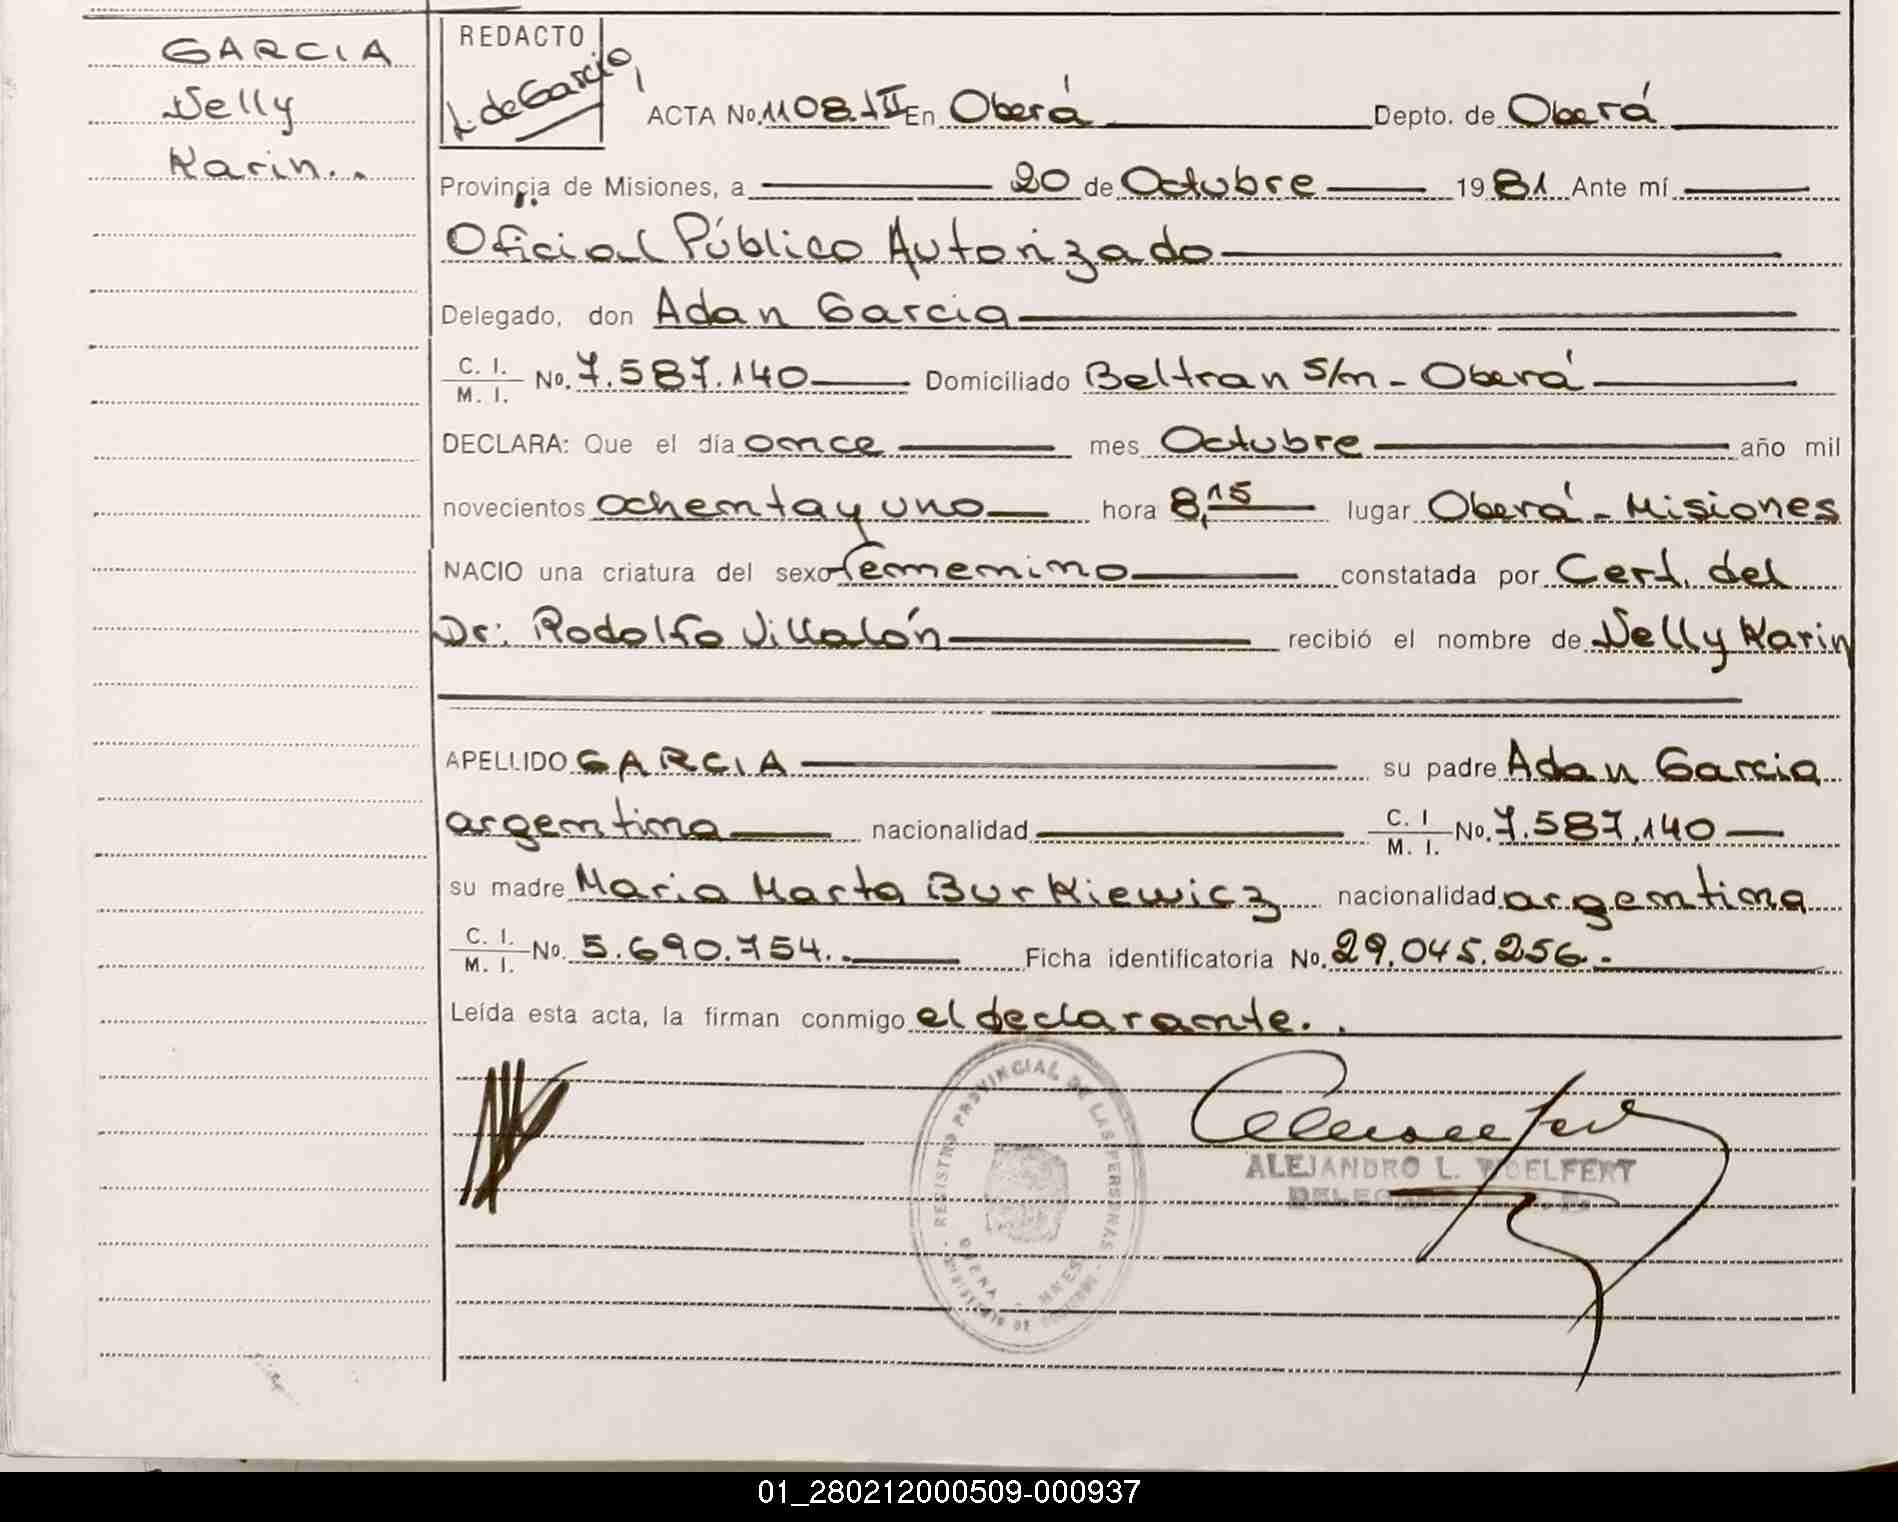 GARCIA
Nelly
Karin..
REDACTO
L. de Garcia
ACTA No. 1108. TII En Oberá Depto. de Oberá
Provincia de Misiones, a 20 de Octubre 1981 Ante mí
Oficial Público Autorizado
Delegado, don Adan Garcia
C. I.
M. I. No. 7.587.140 Domiciliado Beltran S/n - Oberá
DECLARA: Que el día once mes Octubre año mil
novecientos ochenta y uno hora 8,15 lugar Oberá - Misiones
NACIO una criatura del sexo femenino constatada por Cert. del
Dr: Rodolfo Villalón recibió el nombre de Nelly Karin
APELLIDO GARCIA su padre Adan Garcia
argentina nacionalidad C. I
M. I. No. 7.587.140
su madre Maria Marta Burkiewicz nacionalidad argentina
C. I.
M. I. No. 5.690.754.. Ficha identificatoria No. 29.045.256.
Leída esta acta, la firman conmigo el declarante..
REGISTRO PROVINCIAL DE LAS PERSONAS
MINISTERIO DE GOBIERNO
ALEJANDRO L. WOELFERT
01_280212000509-000937